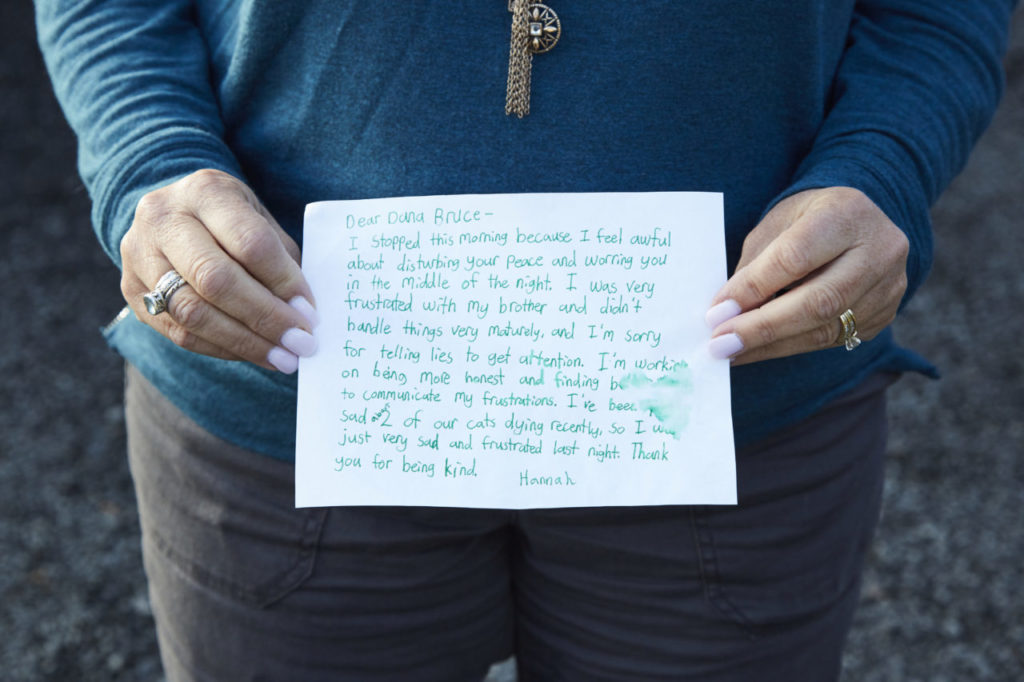 Dear Dana Bruce-
I stopped this morning because I feel awful
about disturbing your peace and worring you
in the middle of the night. I was very
frustrated with my brother and didn't
handle things very maturely, and I'm sorry
for telling lies to get attention. I'm working
on being more honest and finding
to communicate my frustrations. I've been
sad about 2 of our cats dying recently, so I was
just very sad and frustrated last night. Thank
you for being kind. Hannah